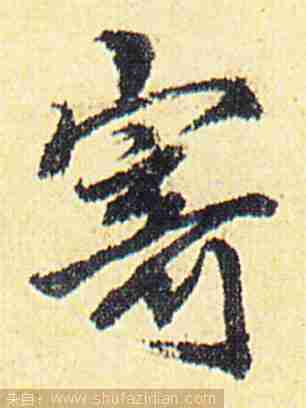 寄
来自：www.shufazidian.com